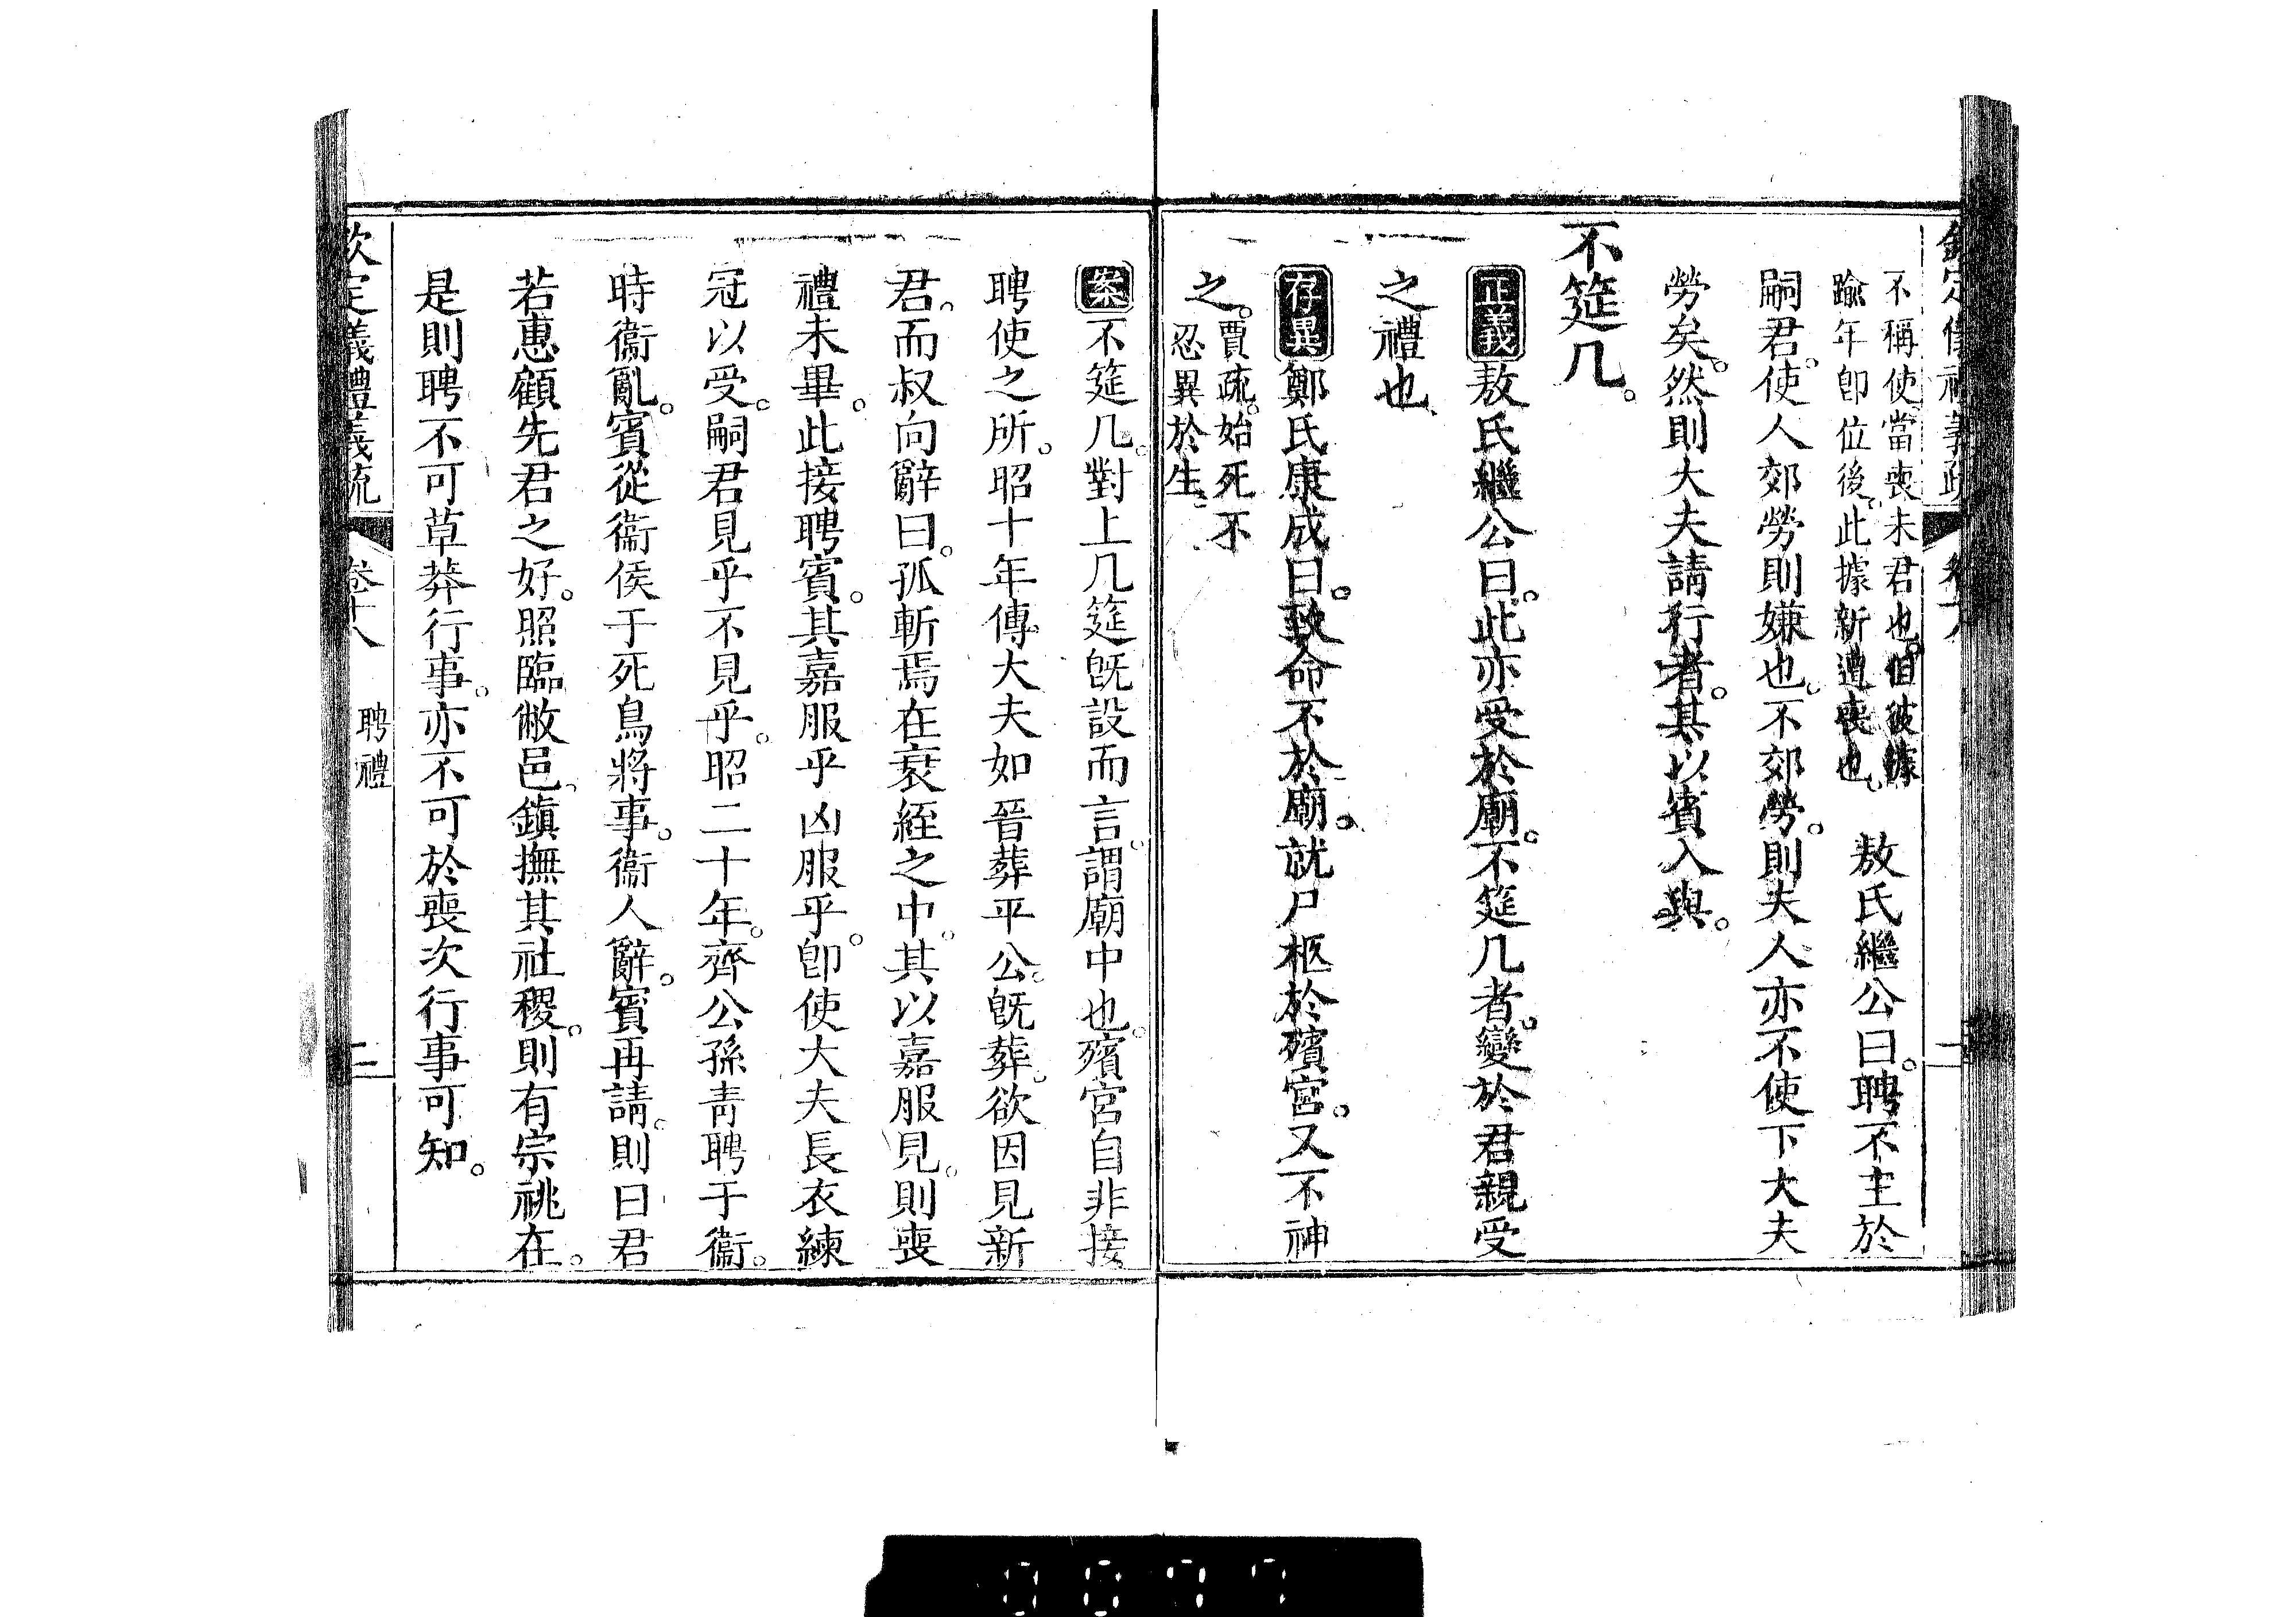 不稱使當喪未君也但彼據
踰年卽位後此據新遭喪也
敖氏繼公曰聘不主於
嗣君使人郊勞則嫌也不郊勞則夫人亦不使下大夫
勞矣然則大夫請行者其以賓入與
不筵几
正義敖氏繼公曰此亦受於廟不筵几者變於君親受
之禮也
存異鄭氏康成曰致命不於廟就尸柩於殯宮又不神
之
賈疏始死不
忍異於生
案不筵几對上几筵旣設而言謂廟中也殯宮自非接
聘使之所昭十年傳大夫如晉葬平公旣葬欲因見新
君而叔向辭曰孤斬焉在衰絰之中其以嘉服見則喪
禮未畢此接聘賓其嘉服乎凶服乎卽使大夫長衣練
冠以受嗣君見乎不見乎昭二十年齊公孫靑聘于衞
時衞亂賓從衞侯于死鳥將事衞人辭賓再請則曰君
若惠顧先君之好照臨敝邑鎭撫其社稷則有宗祧在
是則聘不可草莽行事亦不可於喪次行事可知
欽定儀禮義疏
卷十八
聘禮